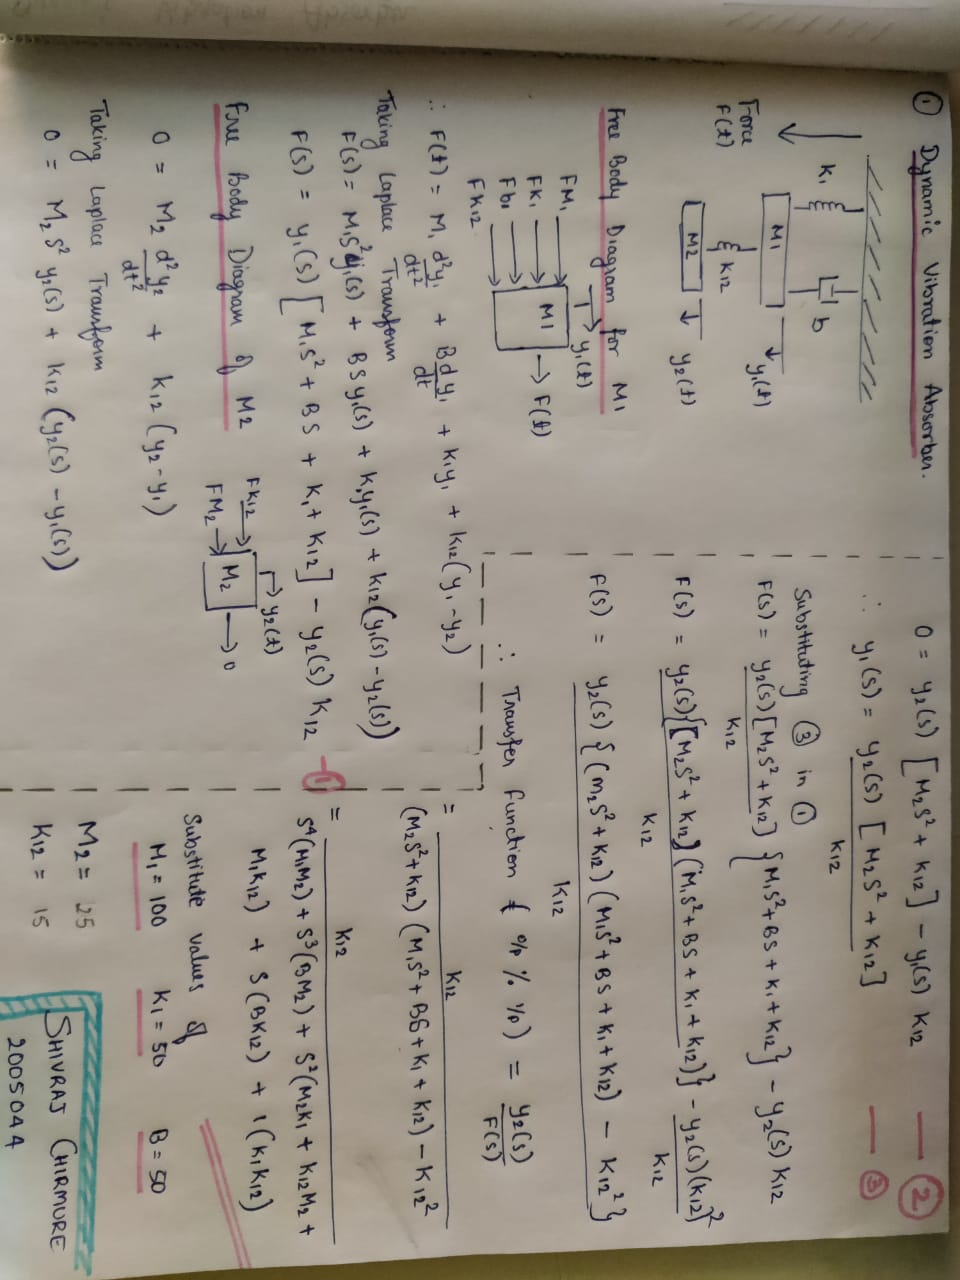 ① Dynamic Vibration Absorber.
K1
b
M1
y1(t)
Force
F(t)
K12
M2
y2(t)
Free Body Diagram for M1
FM1
FK1
Fb1
FK12
M1
y1(t)
F(t)
∴ F(t) = M1 d²y1/dt² + B dy1/dt + K1y1 + K12(y1 - y2)
Taking Laplace Transform
F(s) = M1s²y1(s) + BSy1(s) + K1y1(s) + K12(y1(s) - y2(s))
F(s) = y1(s) [M1s² + BS + K1 + K12] - y2(s) K12 - ①
Free Body Diagram of M2
FK12
FM2
M2
y2(t)
0
0 = M2 d²y2/dt² + K12 (y2 - y1)
Taking Laplace Transform
0 = M2 s² y2(s) + K12 (y2(s) - y1(s))
0 = y2(s) [M2s² + K12] - y1(s) K12 — ②
∴ y1(s) = y2(s) [M2s² + K12] / K12 — ③
Substituting ③ in ①
F(s) = y2(s) [M2s² + K12] / K12 {M1s² + BS + K1 + K12} - y2(s) K12
F(s) = y2(s) {[M2s² + K12] (M1s² + BS + K1 + K12)} / K12 - y2(s) (K12)² / K12
F(s) = y2(s) {(m2s² + K12) (M1s² + BS + K1 + K12) - K12²} / K12
∴ Transfer function ( o/p % i/p) = y2(s) / F(s)
= K12 / (M2s² + K12) (M1s² + BS + K1 + K12) - K12²
= K12 / s⁴(M1M2) + s³(BM2) + s²(M2K1 + K12M2 +
M1K12) + s(BK12) + 1(K1K12)
Substitute values of
M1 = 100 K1 = 50 B = 50
M2 = 25
K12 = 15
SHIVRAJ CHIRMURE
2005044